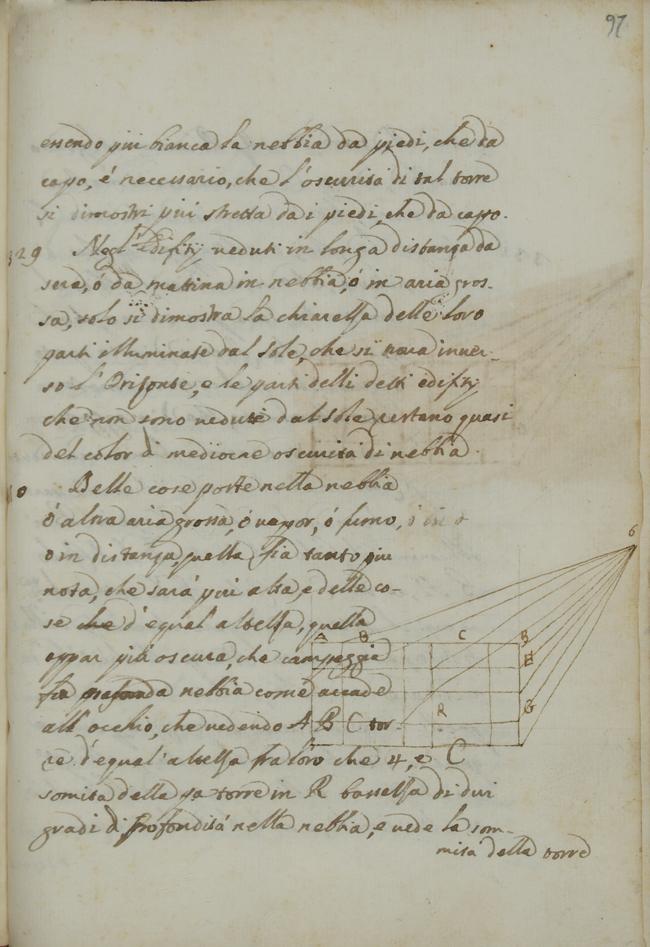 97
essendo più bianca la nebbia da piedi, che da
capo, é necessario, che l'oscurità di tal torre
si dimostri più stretta da i piedi, che da capo.
329 Negl' Edifitij ueduti in longa distanza da
sera, ó da mattina in nebbia, ó in aria gros-
sa, solo si dimostra la chiarezza delle loro
parti illuminate dal sole, che si troua inuer-
so l'Orizonte, e le parti delli detti edifitij
che non sono uedute dal sole restano quasi
del color di mediocre oscurità di nebbia.
Delle cose poste nella nebbia
ó altra aria grossa, ó uapor, ó fumo,
o in distanza, quella fia tanto più
nota, che sarà più alta, e delle co-
se che d'equal'altezza, quella
appar più oscura, che campeggia
profonda nebbia come accade
all'occhio, che uedendo A B C tor-
re d'equal'altezza fra loro che 4, e C
somità della pa torre in R bassezza di dui
gradi di profondità nella nebbia, e uede la som-
mità della torre
A B C
R
G